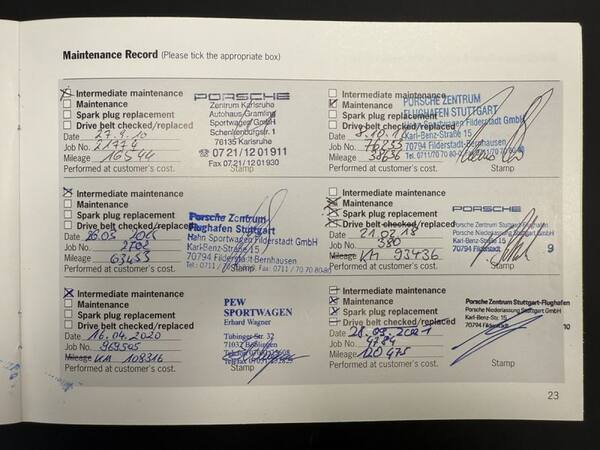 Maintenance Record (Please tick the appropriate box)
Intermediate maintenance
Maintenance
Spark plug replacement
Drive belt checked/replaced
Date 27.9.10
Job No. 21774
Mileage 16544
Performed at customer's cost.
PORSCHE
Zentrum Karlsruhe
Autohaus Gramling
Sportwagen GmbH
Schenkenburgstr. 1
76135 Karlsruhe
☎ 07 21/12 01 911
Fax 07 21/12 01 930
Stamp
Intermediate maintenance
Maintenance
Spark plug replacement
Drive belt checked/replaced
Date
Job No. 76233
Mileage 38636
Performed at customer's cost.
PORSCHE ZENTRUM
FLUGHAFEN STUTTGART
Hahn Sportwagen Filderstadt GmbH
Karl-Benz-Straße 15
70794 Filderstadt-Bernhausen
Stamp
Intermediate maintenance
Maintenance
Spark plug replacement
Drive belt checked/replaced
Date
Job No. 2702
Mileage 63453
Performed at customer's cost.
Porsche Zentrum
Flughafen Stuttgart
Hahn Sportwagen Filderstadt GmbH
Karl-Benz-Straße 15
70794 Filderstadt-Bernhausen
Stamp
Intermediate maintenance
Maintenance
Spark plug replacement
Drive belt checked/replaced
Date 21.02.18
Job No. 380
Mileage KM 93436
Performed at customer's cost.
PORSCHE
Porsche Zentrum Stuttgart-Flughafen
Porsche Niederlassung Stuttgart GmbH
Karl-Benz-Straße 15
70794 Filderstadt
9
Stamp
Intermediate maintenance
Maintenance
Spark plug replacement
Drive belt checked/replaced
Date 16.04.2020
Job No. 969505
Mileage KM 108316
Performed at customer's cost.
PEW
SPORTWAGEN
Erhard Wagner
Tübinger Str. 32
71032 Böblingen
Stamp
Intermediate maintenance
Maintenance
Spark plug replacement
Drive belt checked/replaced
Date 28.09.2021
Job No. 9784
Mileage 120475
Performed at customer's cost.
Porsche Zentrum Stuttgart-Flughafen
Porsche Niederlassung Stuttgart GmbH
Karl-Benz-Str. 15
70794 Filderstadt
10
Stamp
23